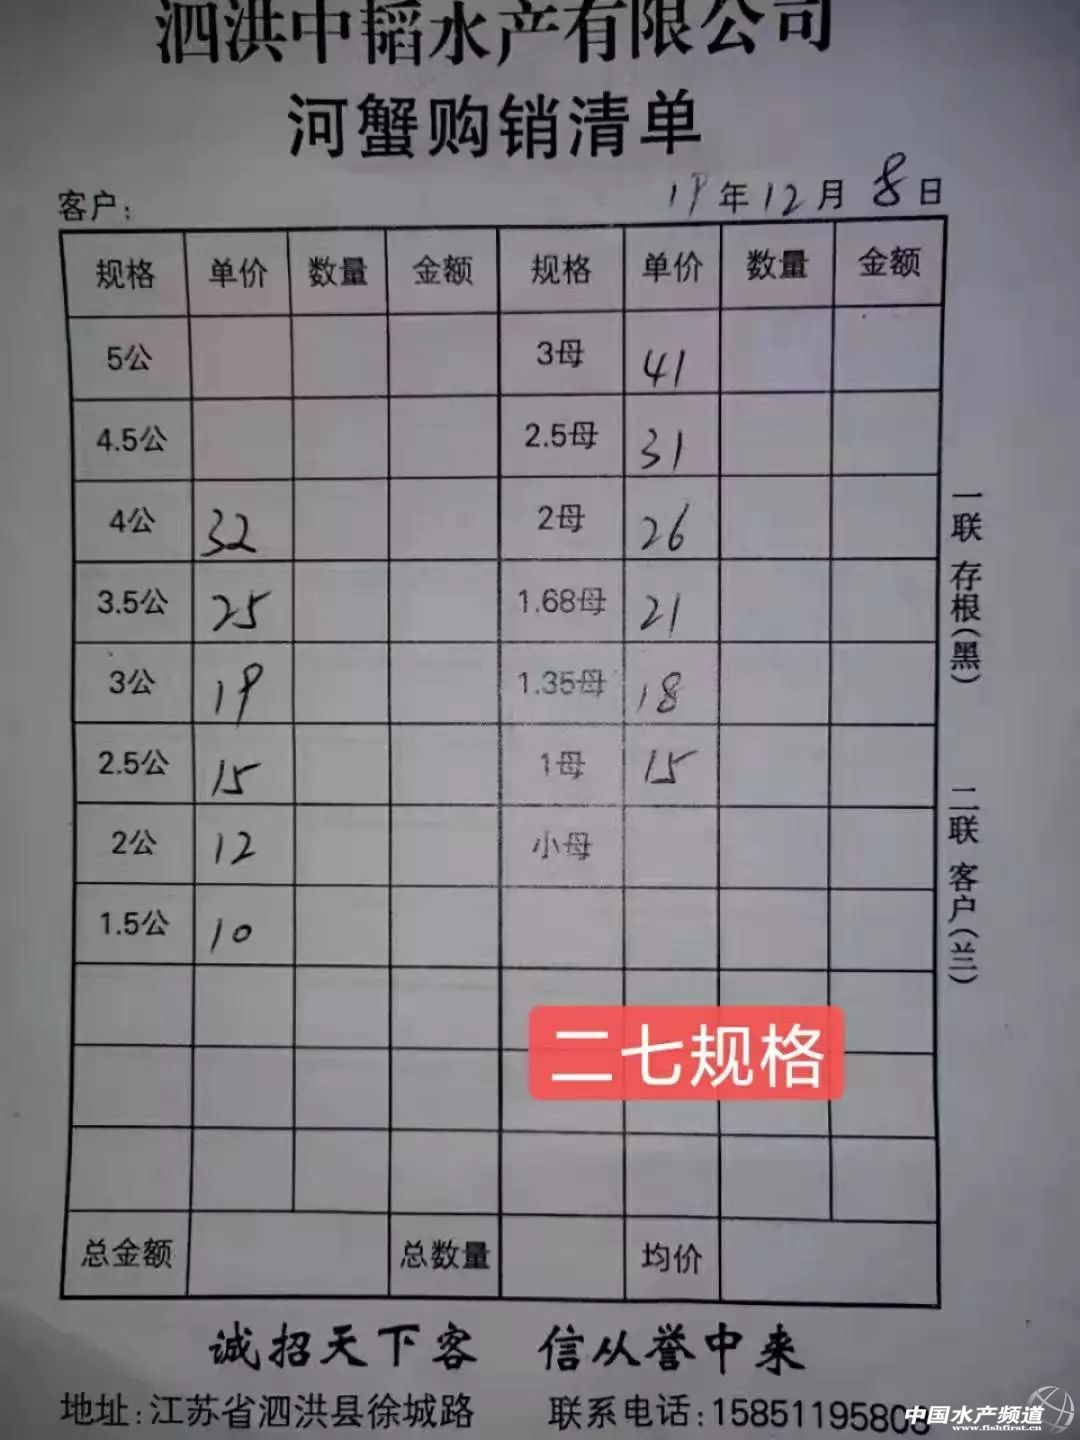 泗洪中韬水产有限公司
河蟹购销清单
客户: 19年12月8日
规格 单价 数量 金额 规格 单价 数量 金额
5公 3母 41
4.5公 2.5母 31
4公 32 2母 26
3.5公 25 1.68母 21
3公 19 1.35母 18
2.5公 15 1母 15
2公 12 小母
1.5公 10
二七规格
总金额 总数量 均价
一联 存根(黑) 二联 客户(兰)
诚招天下客 信从誉中来
地址:江苏省泗洪县徐城路 联系电话:15851195808
中国水产频道
www.fishfirst.cn